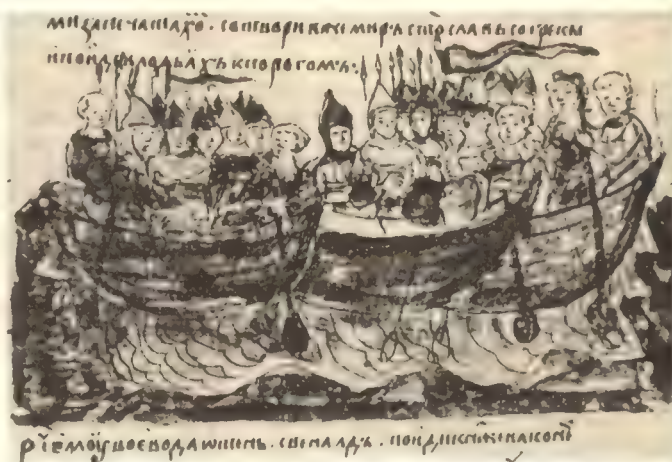 ми запечаташа. сътвори же миръ ст҃ославъ со греки
и поиде в лодьꙗхъ къ порогомъ.
р҃че емоу воевода ѿтень. свеналдъ. поиди кнѧже на коне